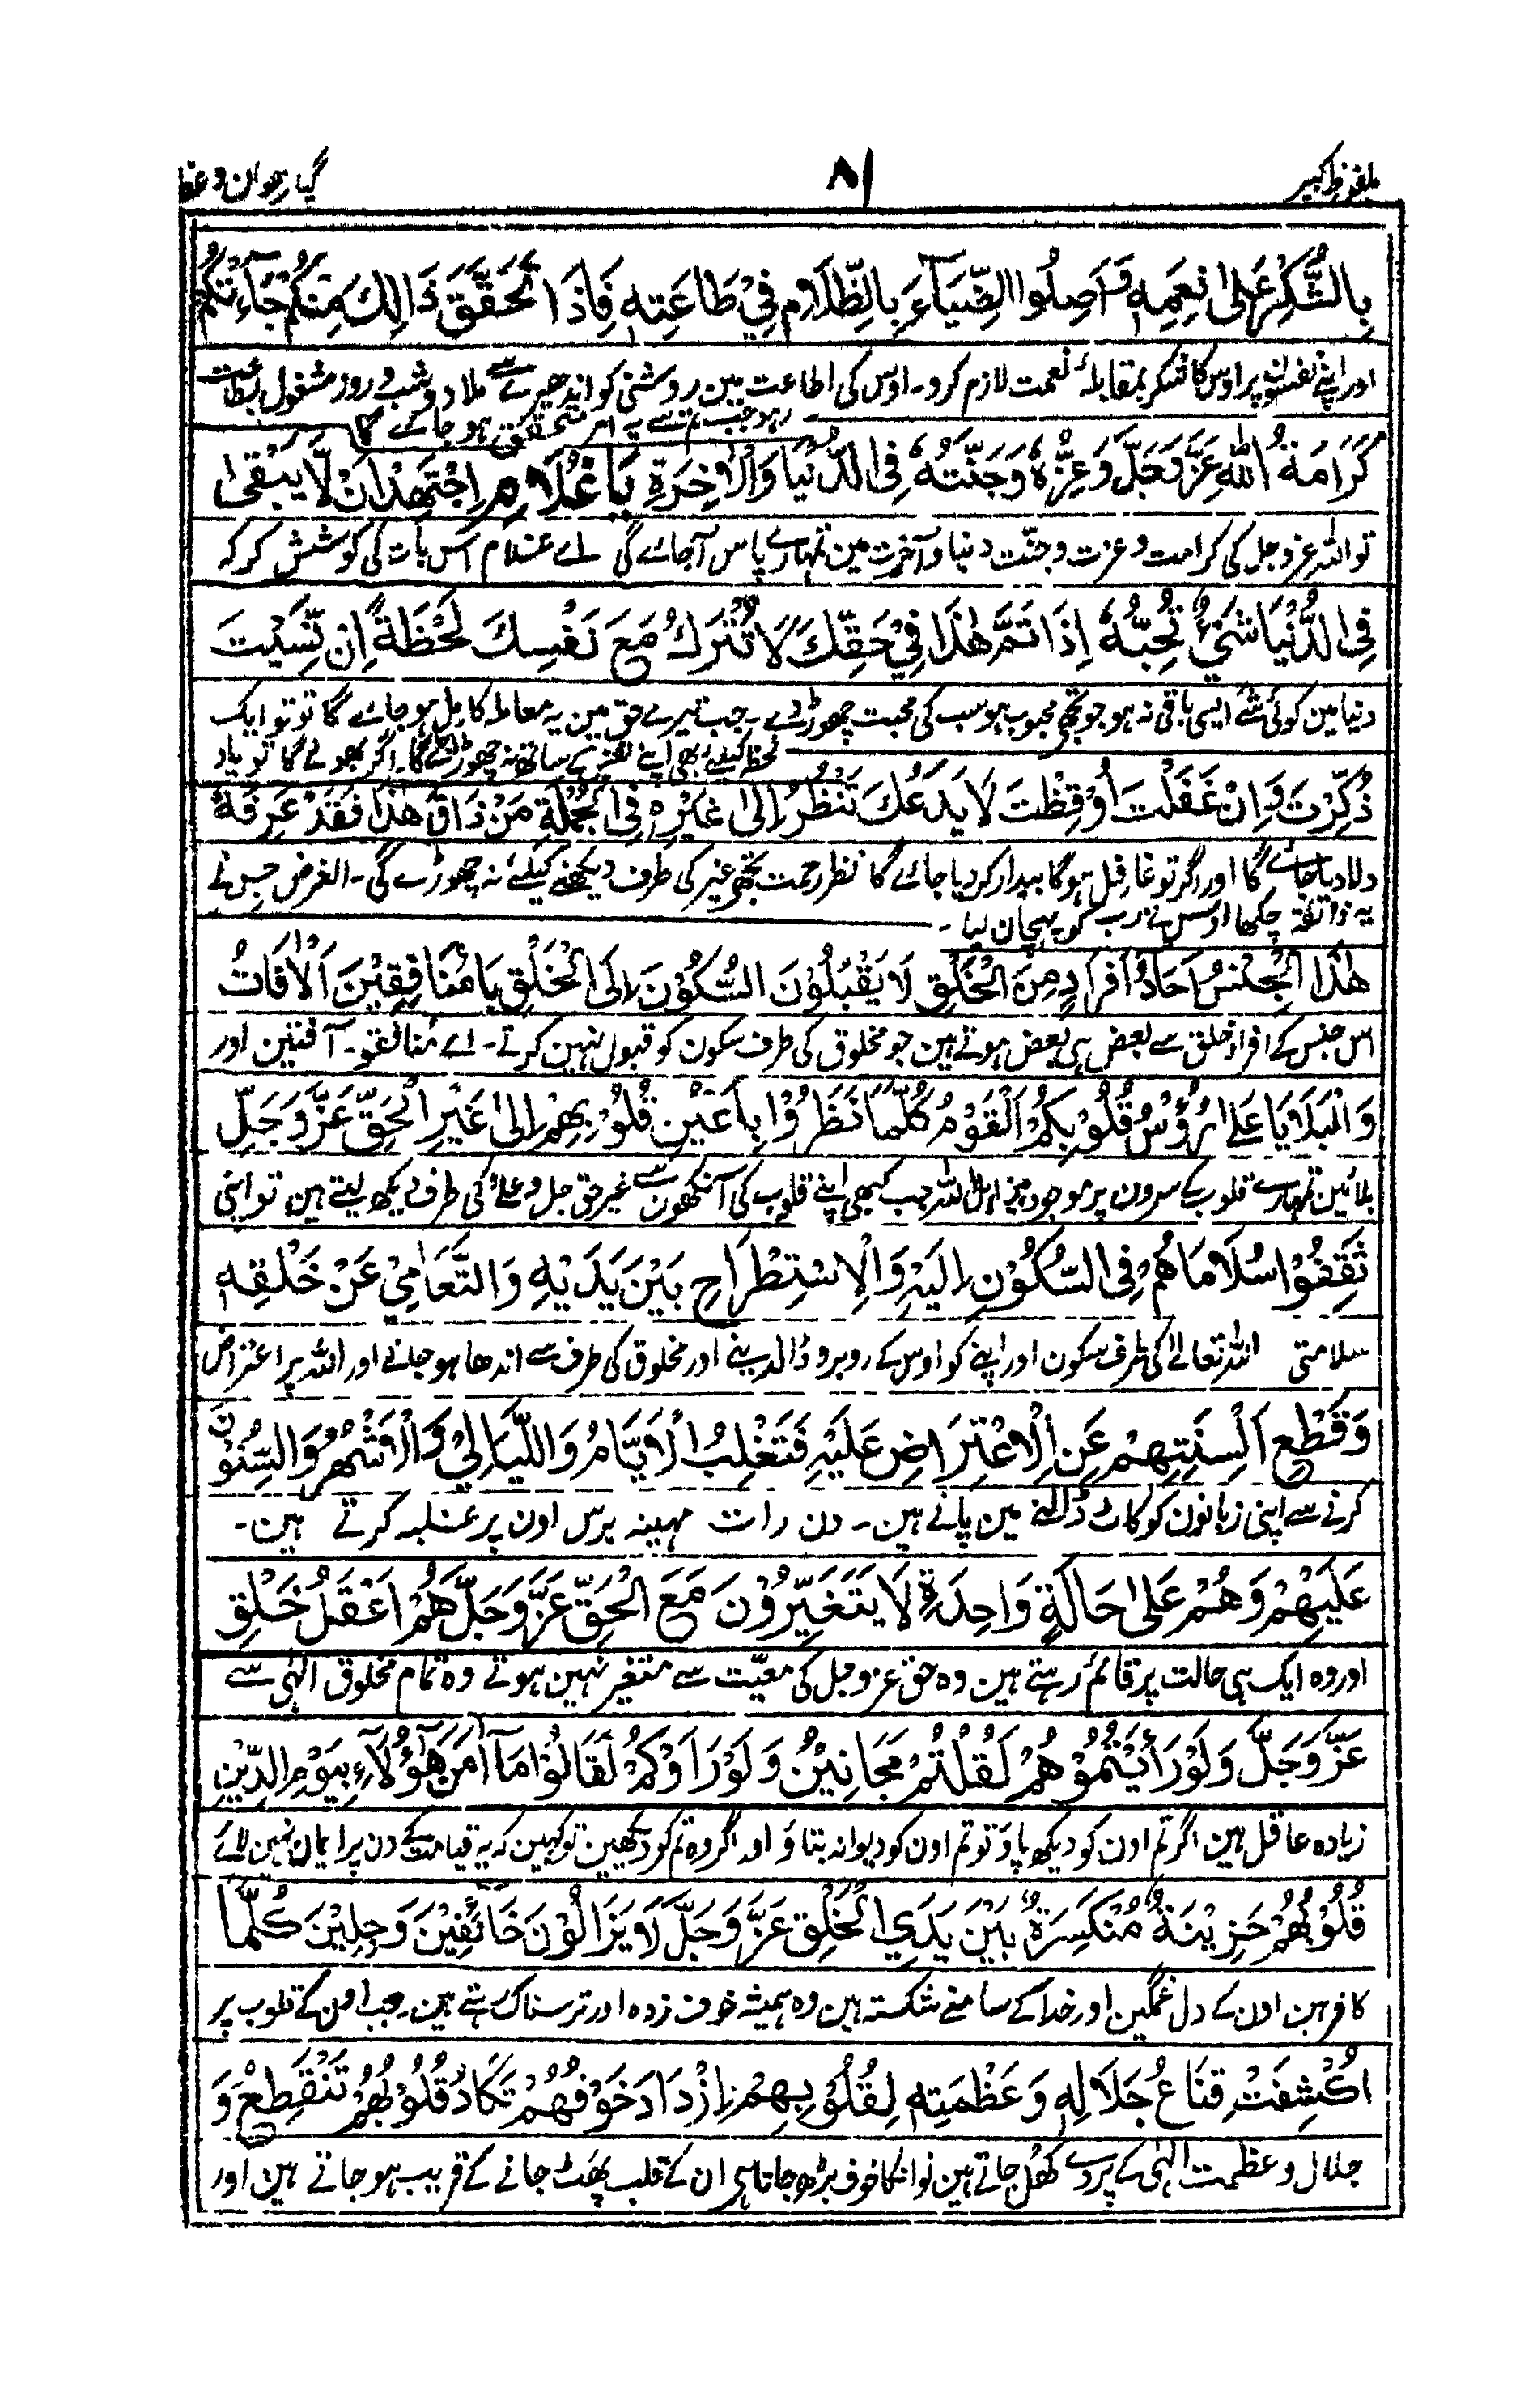 ملفوظ کبیر ۸۱ گیارہوان وعظ
بِالشُّكْرِ عَلٰى نِعَمِهٖ وَاَصِلُوا الضِّيَآءَ بِالظَّلَامِ فِيْ طَاعَتِهٖ فَاِذَا تَحَقَّقَ ذَالِكَ مِنْكُمْ جَآءَتْكُمْ
اور اپنے نفسون پر اوس کا شکر بمقابلۂ نعمت لازم کرو۔ اوس کی اطاعت مین روشنی کو اندھیرے سے ملا دو شب و روز مشغول بطاعت
رہو جب تم سے یہ امر متحقق ہو جائے گا
كَرَامَةُ اللّٰهِ عَزَّ وَجَلَّ وَعِزُّهٗ وَجَنَّتُهٗ فِي الدُّنْيَا وَالْاٰخِرَةِ يَا غُلَامِ اجْتَهِدْ اَنْ لَّا يَبْقٰى
تو اللہ عز و جل کی کرامت و عزت و جنت دنیا و آخرت مین تمہارے پاس آ جائے گی اے غلام اس بات کی کوشش کر کہ
فِي الدُّنْيَا شَيْءٌ تُحِبُّهٗ اِذَا تَمَّ هٰذَا فِيْ حَقِّكَ لَا تُتْرَكُ مَعَ نَفْسِكَ لَحْظَةً اِنْ نَّسِيْتَ
دنیا مین کوئی شے ایسی باقی نہ ہو جو تجھے محبوب ہو سب کی محبت چھوڑ دے۔ جب تیرے حق مین یہ معاملہ کامل ہو جائے گا تو تو ایک
لحظہ کیلئے بھی اپنے نفس کے ساتھ نہ چھوڑا جائیگا۔ اگر بھولے گا تو یاد
ذُكِّرْتَ وَاِنْ غَفَلْتَ اُوْقِظْتَ لَا يَدَعُكَ تَنْظُرُ اِلٰى غَيْرِهٖ فِي الْجُمْلَةِ مَنْ ذَاقَ هٰذَا فَقَدْ عَرِفَهٗ
دلا دیا جائے گا اور اگر تو غافل ہو گا بیدار کر دیا جائے گا نظر رحمت تجھے غیر کی طرف دیکھنے کیلئے نہ چھوڑے گی۔ الغرض جس نے
یہ ذائقہ چکھا اوس نے رب کو پہچان لیا۔
هٰذَا الْجِنْسُ اٰحَادُ اَفْرَادٍ مِنَ الْخَلْقِ لَا يَقْبَلُوْنَ السُّكُوْنَ اِلَى الْخَلْقِ يَا مُنَافِقِيْنَ اَلْاٰفَاتُ
اس جنس کے افراد خلق سے بعض ہی بعض ہوتے ہین جو مخلوق کی طرف سکون کو قبول نہین کرتے۔ اے منافقو۔ آفتین اور
وَالْبَلَايَا عَلٰى رُؤُسِ قُلُوْبِكُمْ اَلْقَوْمُ كُلَّمَا نَظَرُوْا بِاَعْيُنِ قُلُوْبِهِمْ اِلٰى غَيْرِ الْحَقِّ عَزَّ وَجَلَّ
بلائین تمہارے قلوب کے سرون پر موجود ہین اہل اللہ جب کبھی اپنے قلوب کی آنکھون سے غیر حق جل و علا کی طرف دیکھ لیتے ہین تو اپنی
ثَقِفُوْا سُلَامَاهُمْ فِي السُّكُوْنِ اِلَيْهِ وَالْاِسْتِطْرَاحِ بَيْنَ يَدَيْهِ وَالتَّعَامِيْ عَنْ خَلْقِهٖ
سلامتی اللہ تعالے کی طرف سکون اور اپنے کو اوس کے روبرو ڈالدینے اور مخلوق کی طرف سے اندھا ہو جانے اور اللہ پر اعتراض
وَقَطْعِ اَلْسِنَتِهِمْ عَنِ الْاِعْتِرَاضِ عَلَيْهِ فَتَغْلِبُ الْاَيَّامُ وَاللَّيَالِيْ وَالْاَشْهُرُ وَالسِّنُوْنَ
کرنے سے اپنی زبانون کو کاٹ ڈالنے مین پاتے ہین۔ دن رات مہینہ برس اون پر غلبہ کرتے ہین۔
عَلَيْهِمْ وَهُمْ عَلٰى حَالَةٍ وَاحِدَةٍ لَا يَتَغَيَّرُوْنَ مَعَ الْحَقِّ عَزَّ وَجَلَّ هُمْ اَعْقَلُ خَلْقِ
اور وہ ایک ہی حالت پر قائم رہتے ہین وہ حق عز و جل کی معیت سے متغیر نہین ہوتے وہ تمام مخلوق الٰہی سے
عَزَّ وَجَلَّ وَلَوْ رَاَيْتُمُوْهُمْ لَقُلْتُمْ مَجَانِيْنُ وَلَوْ رَاَوْكُمْ لَقَالُوْا مَآ اٰمَنَ هٰٓؤُلَآءِ بِيَوْمِ الدِّيْنِ
زیادہ عاقل ہین اگر تم اون کو دیکھ پاؤ تو تم اون کو دیوانہ بتاؤ اور اگر وہ تم کو دیکھین تو کہین کہ یہ قیامت کے دن پر ایمان نہین لائے
قُلُوْبُهُمْ حَزِيْنَةٌ مُنْكَسِرَةٌ بَيْنَ يَدَيِ الْخَلْقِ عَزَّ وَجَلَّ لَا يَزَالُوْنَ خَآئِفِيْنَ وَجِلِيْنَ كُلَّمَا
کافر ہین اون کے دل غمگین اور خدا کے سامنے شکستہ ہین وہ ہمیشہ خوف زدہ اور ترسناک رہتے ہین۔ جب اون کے قلوب پر
اكْشِفَتْ قِنَاعُ جَلَالِهٖ وَعَظْمَتِهٖ لِقُلُوْبِهِمْ اِزْدَادَ خَوْفُهُمْ تَكَادُ قُلُوْبُهُمْ تَنْقَطِعُ وَ
جلال و عظمت الٰہی کے پردے کھل جاتے ہین تو انکا خوف بڑھ جاتا ہی ان کے قلب پھٹ جانے کے قریب ہو جاتے ہین اور